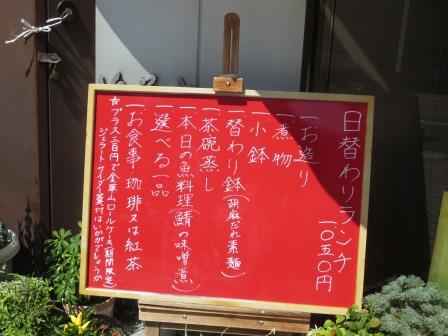 日替わりランチ
一〇五〇円
一お造り
一煮物
一小鉢
一替わり鉢(胡麻だれ素麺)
一茶碗蒸し
一本日の魚料理(鯖の味噌煮)
一選べる一品
一お食事 珈琲又は紅茶
☆プラス三百円で金華山ロールケーキ(期間限定)
ジェラートサイダー葉付はいかがでしょうか